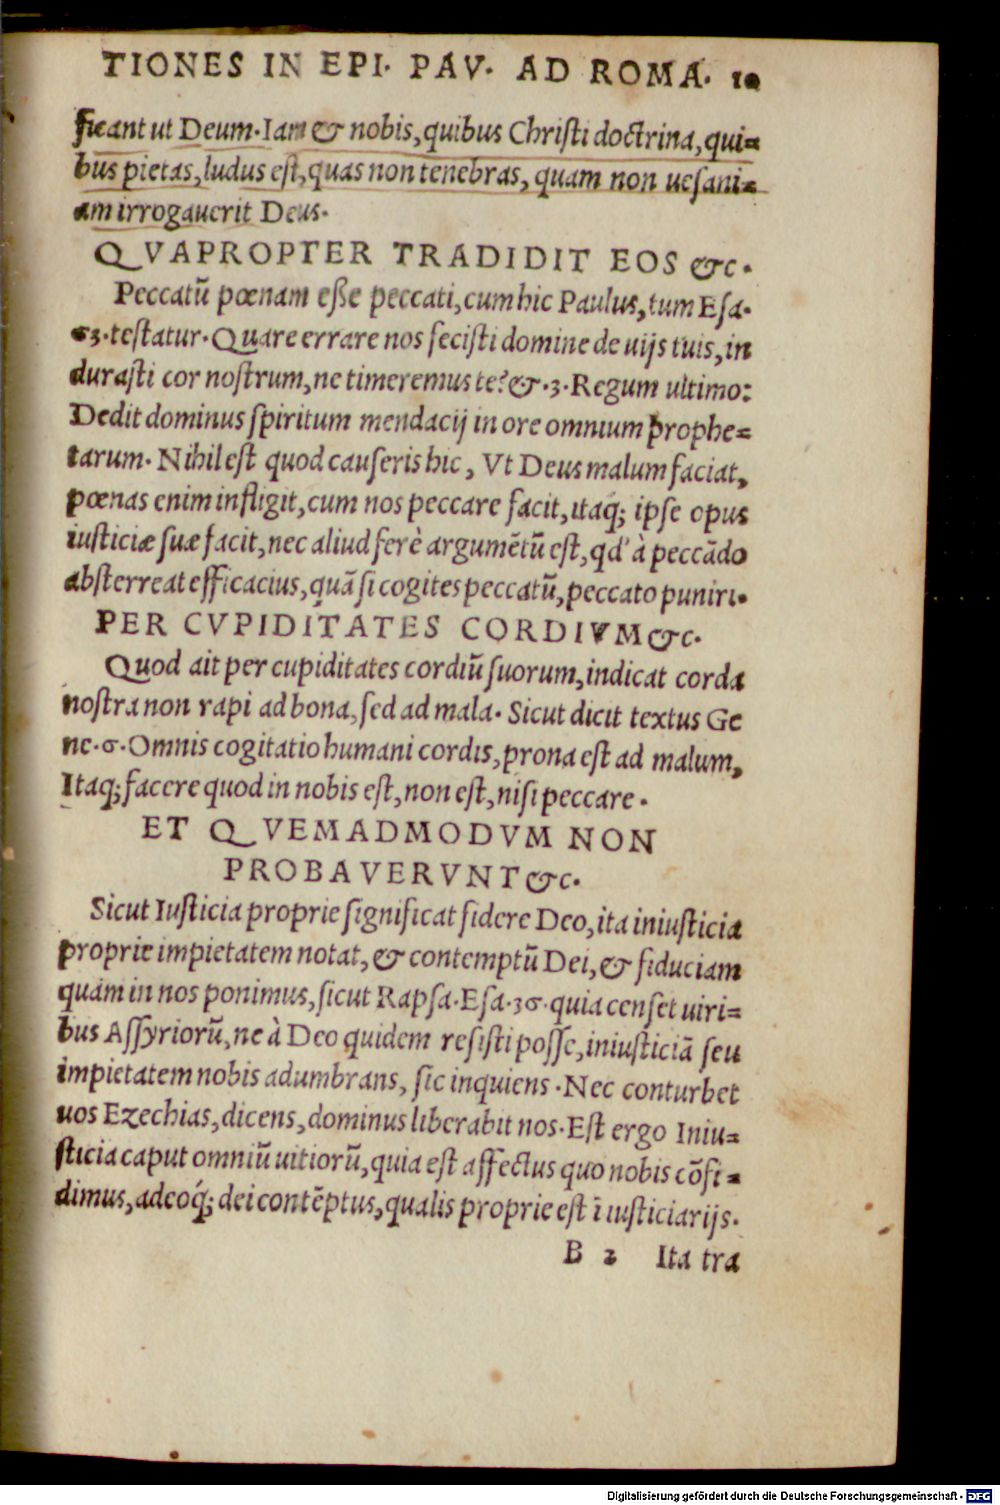 TIONES IN EPI· PAV· AD ROMA· 10
ficant ut Deum·Iam & nobis,quibus Christi doctrina,qui=
bus pietas,ludus est,quas non tenebras, quam non uesani=
am irrogauerit Deus·
QVAPROPTER TRADIDIT EOS &c·
Peccatũ pœnam eße peccati,cum hic Paulus,tum Esa·
63·testatur·Quare errare nos fecisti domine de uijs tuis,in
durasti cor nostrum,ne timeremus te?&·3·Regum ultimo:
Dedit dominus spiritum mendacij in ore omnium prophe=
tarum·Nihil est quod causeris hic, Vt Deus malum faciat,
pœnas enim infligit,cum nos peccare facit,itaq; ipse opus
iusticiæ suæ facit,nec aliud ferè argumẽtũ est,qd' à peccãdo
absterreat efficacius,quã si cogites peccatũ,peccato puniri·
PER CVPIDITATES CORDIVM &c·
Quod ait per cupiditates cordiũ suorum,indicat corda
nostra non rapi ad bona,sed ad mala· Sicut dicit textus Ge
ne·6·Omnis cogitatio humani cordis,prona est ad malum,
Itaq; facere quod in nobis est,non est,nisi peccare·
ET QVEMADMODVM NON
PROBAVERVNT &c·
Sicut Iusticia proprie significat fidere Deo,ita iniusticia
proprie impietatem notat,& contemptũ Dei,& fiduciam
quam in nos ponimus,sicut Rapsa·Esa·36·quia censet uiri=
bus Assyriorũ,ne à Deo quidem resisti posse,iniusticiã seu
impietatem nobis adumbrans, sic inquiens·Nec conturbet
uos Ezechias,dicens,dominus liberabit nos·Est ergo Iniu=
sticia caput omniũ uitiorũ,quia est affectus quo nobis cõfi=
dimus,adeoq́; dei contẽptus,qualis proprie est ĩ iusticiarijs·
B 2 Ita tra
Digitalisierung gefördert durch die Deutsche Forschungsgemeinschaft - DFG